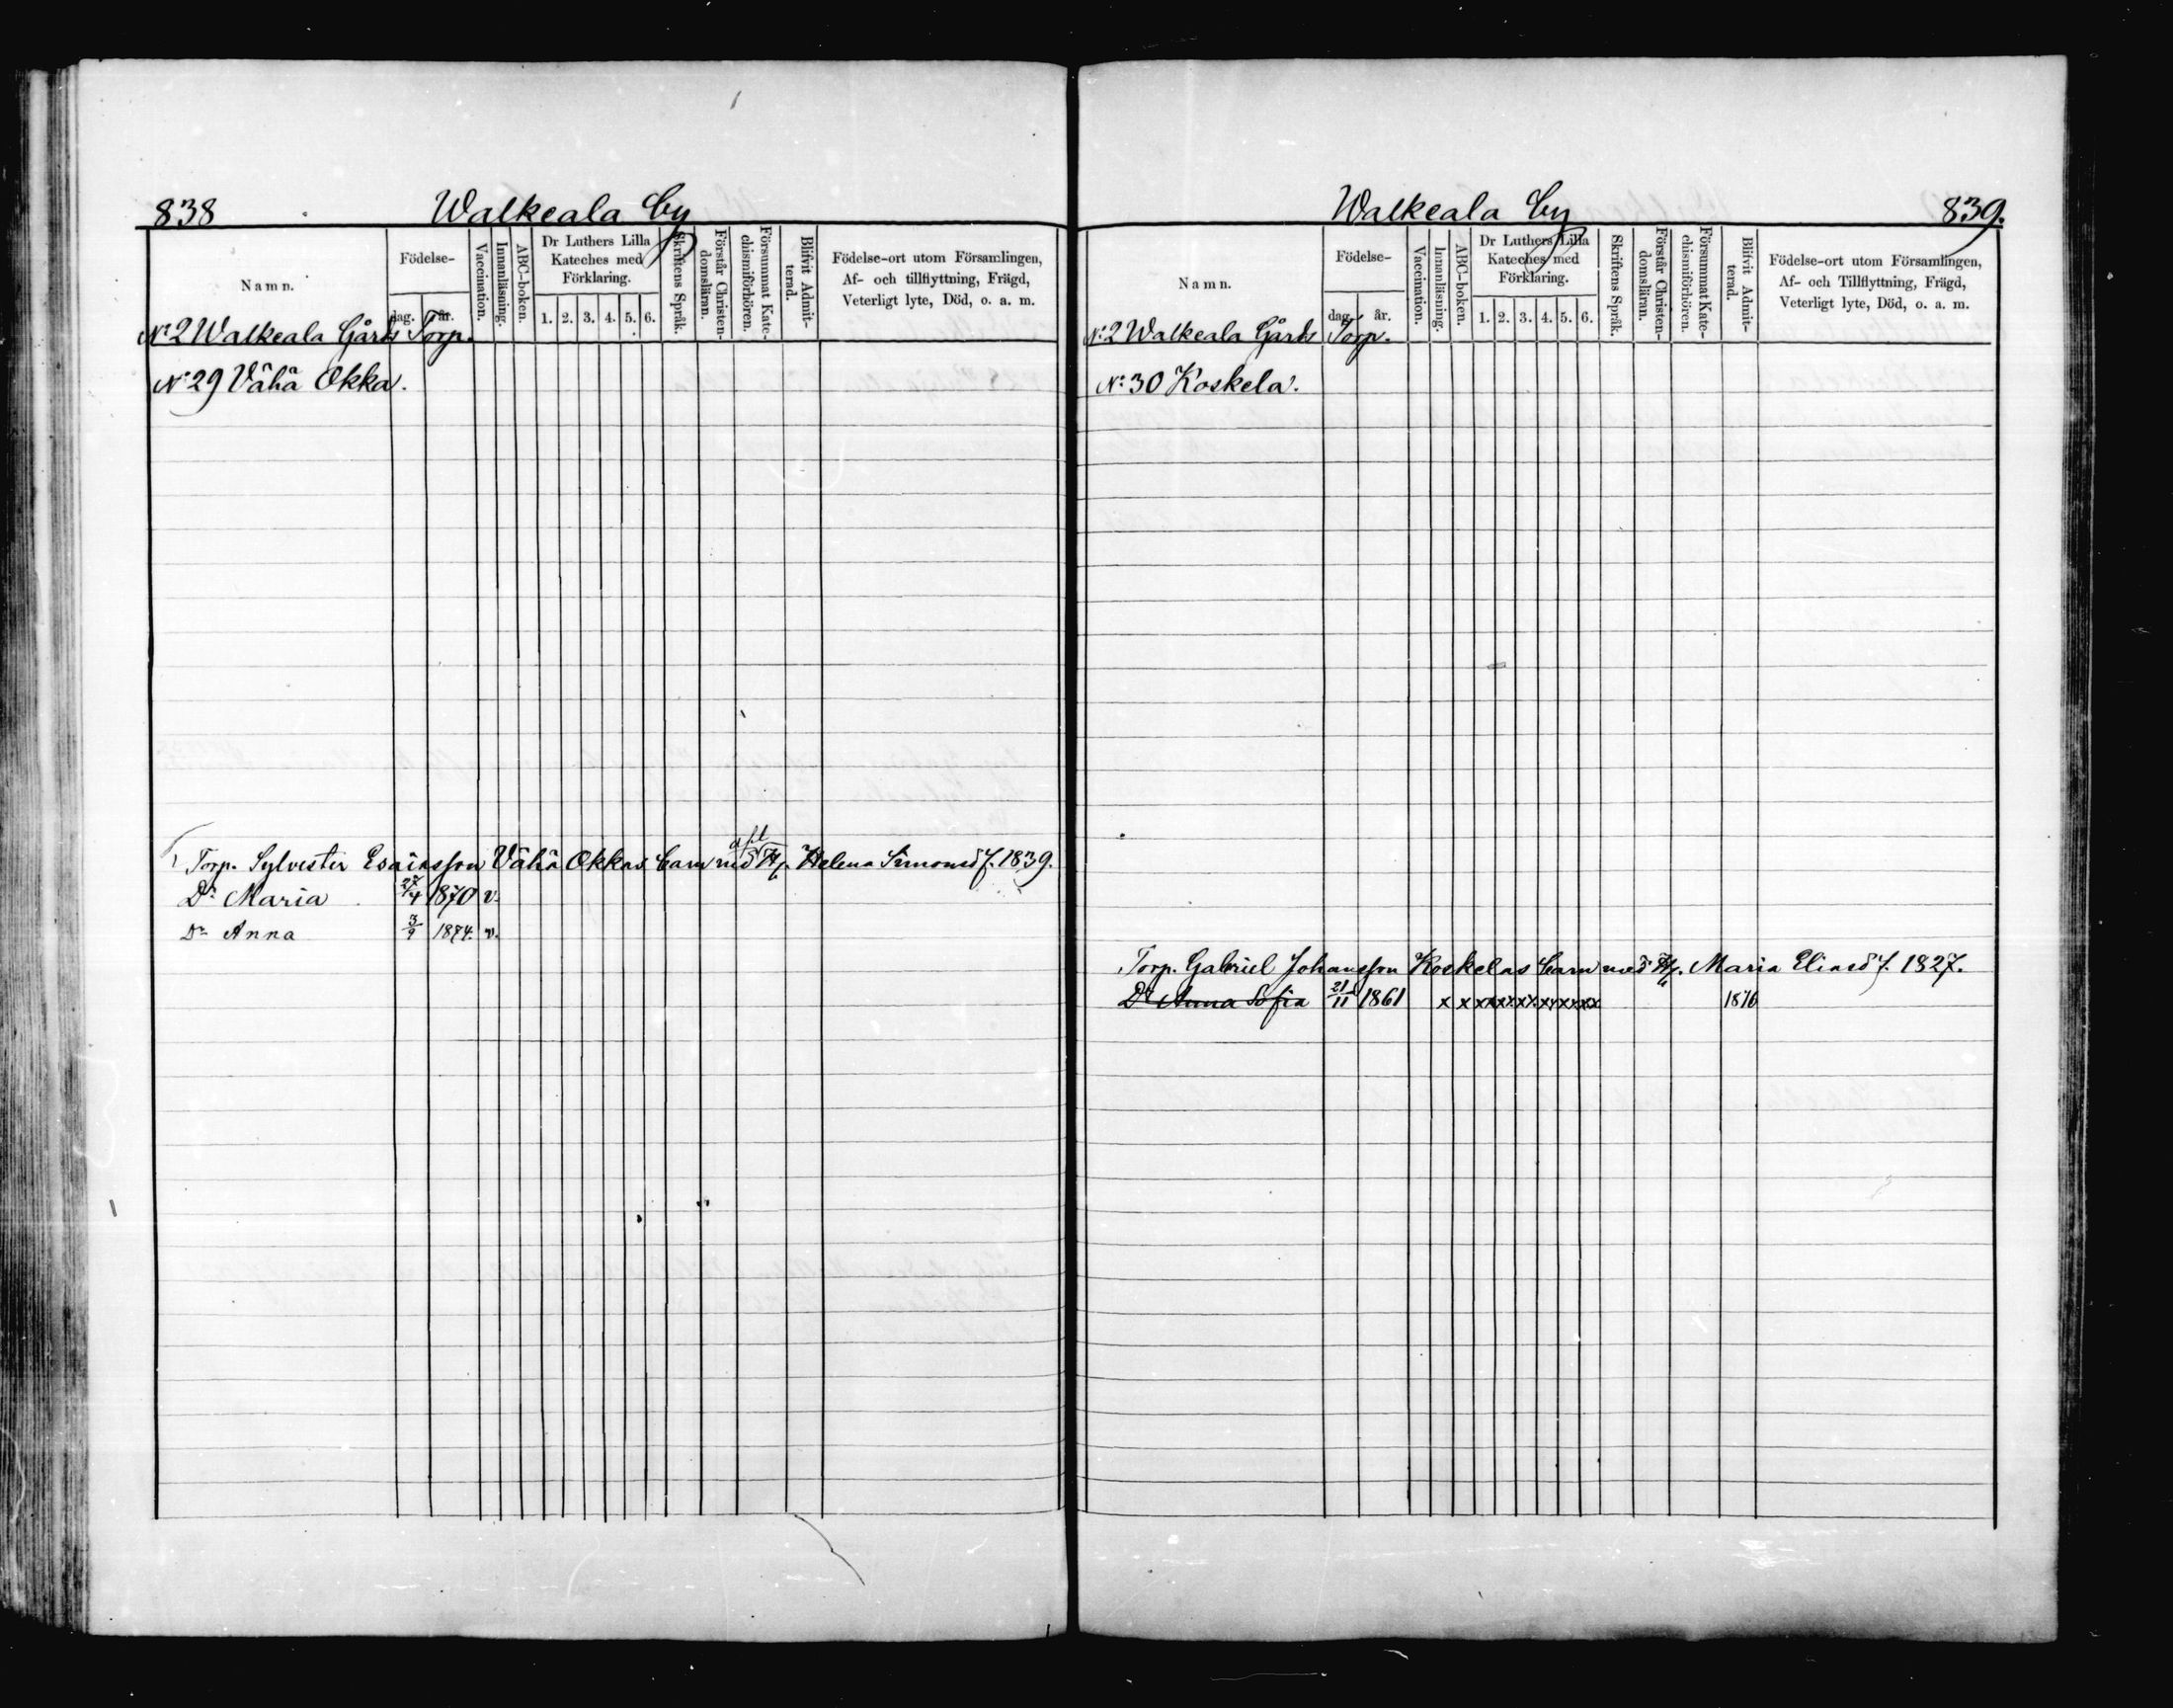 838 Walkeala by
Namn.
Födelse-
dag. år.
Vaccination.
Innanläsning.
ABC-boken.
Dr Luthers Lilla
Kateches med
Förklaring.
1. 2. 3. 4. 5. 6.
Skriftens Språk.
Förstår Christen-
domsläran.
Försummat Kate-
chismiförhören.
Blifvit Admit-
terad.
Födelse-ort utom Församlingen,
Af- och tillflyttning, Frägd,
Veterligt lyte, Död, o. a. m.
No 2 Walkeala Gårds Torp.
No 29 Vähä Okka.
afl
Torp. Sylvester Esaiasson Vähä Okkas barn med H. Helena Simonsd f. 1839.
Dr Maria 27/4 1870 v.
Dr Anna 3/9 1874. v.
Walkeala by 839.
Namn.
Födelse-
dag. år.
Vaccination.
Innanläsning.
ABC-boken.
Dr Luthers Lilla
Kateches med
Förklaring.
1. 2. 3. 4. 5. 6.
Skriftens Språk.
Förstår Christen-
domsläran.
Försummat Kate-
chismiförhören.
Blifvit Admit-
terad.
Födelse-ort utom Församlingen,
Af- och Tillflyttning, Frägd,
Veterligt lyte, Död, o. a. m.
No 2 Walkeala Gårds Torp.
No 30 Koskela.
Torp. Gabriel Johansson Koskelas barn med H. Maria Eliasd f. 1827.
Dr Anna Sofia 21/11 1861 x x x x x x x x x x x x x x 1876